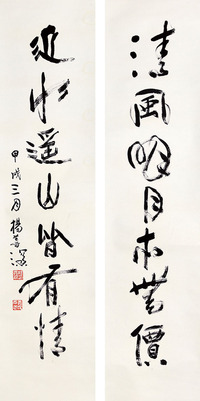 清風明月本無價
近水遥山皆有情
甲戌三月楊善深